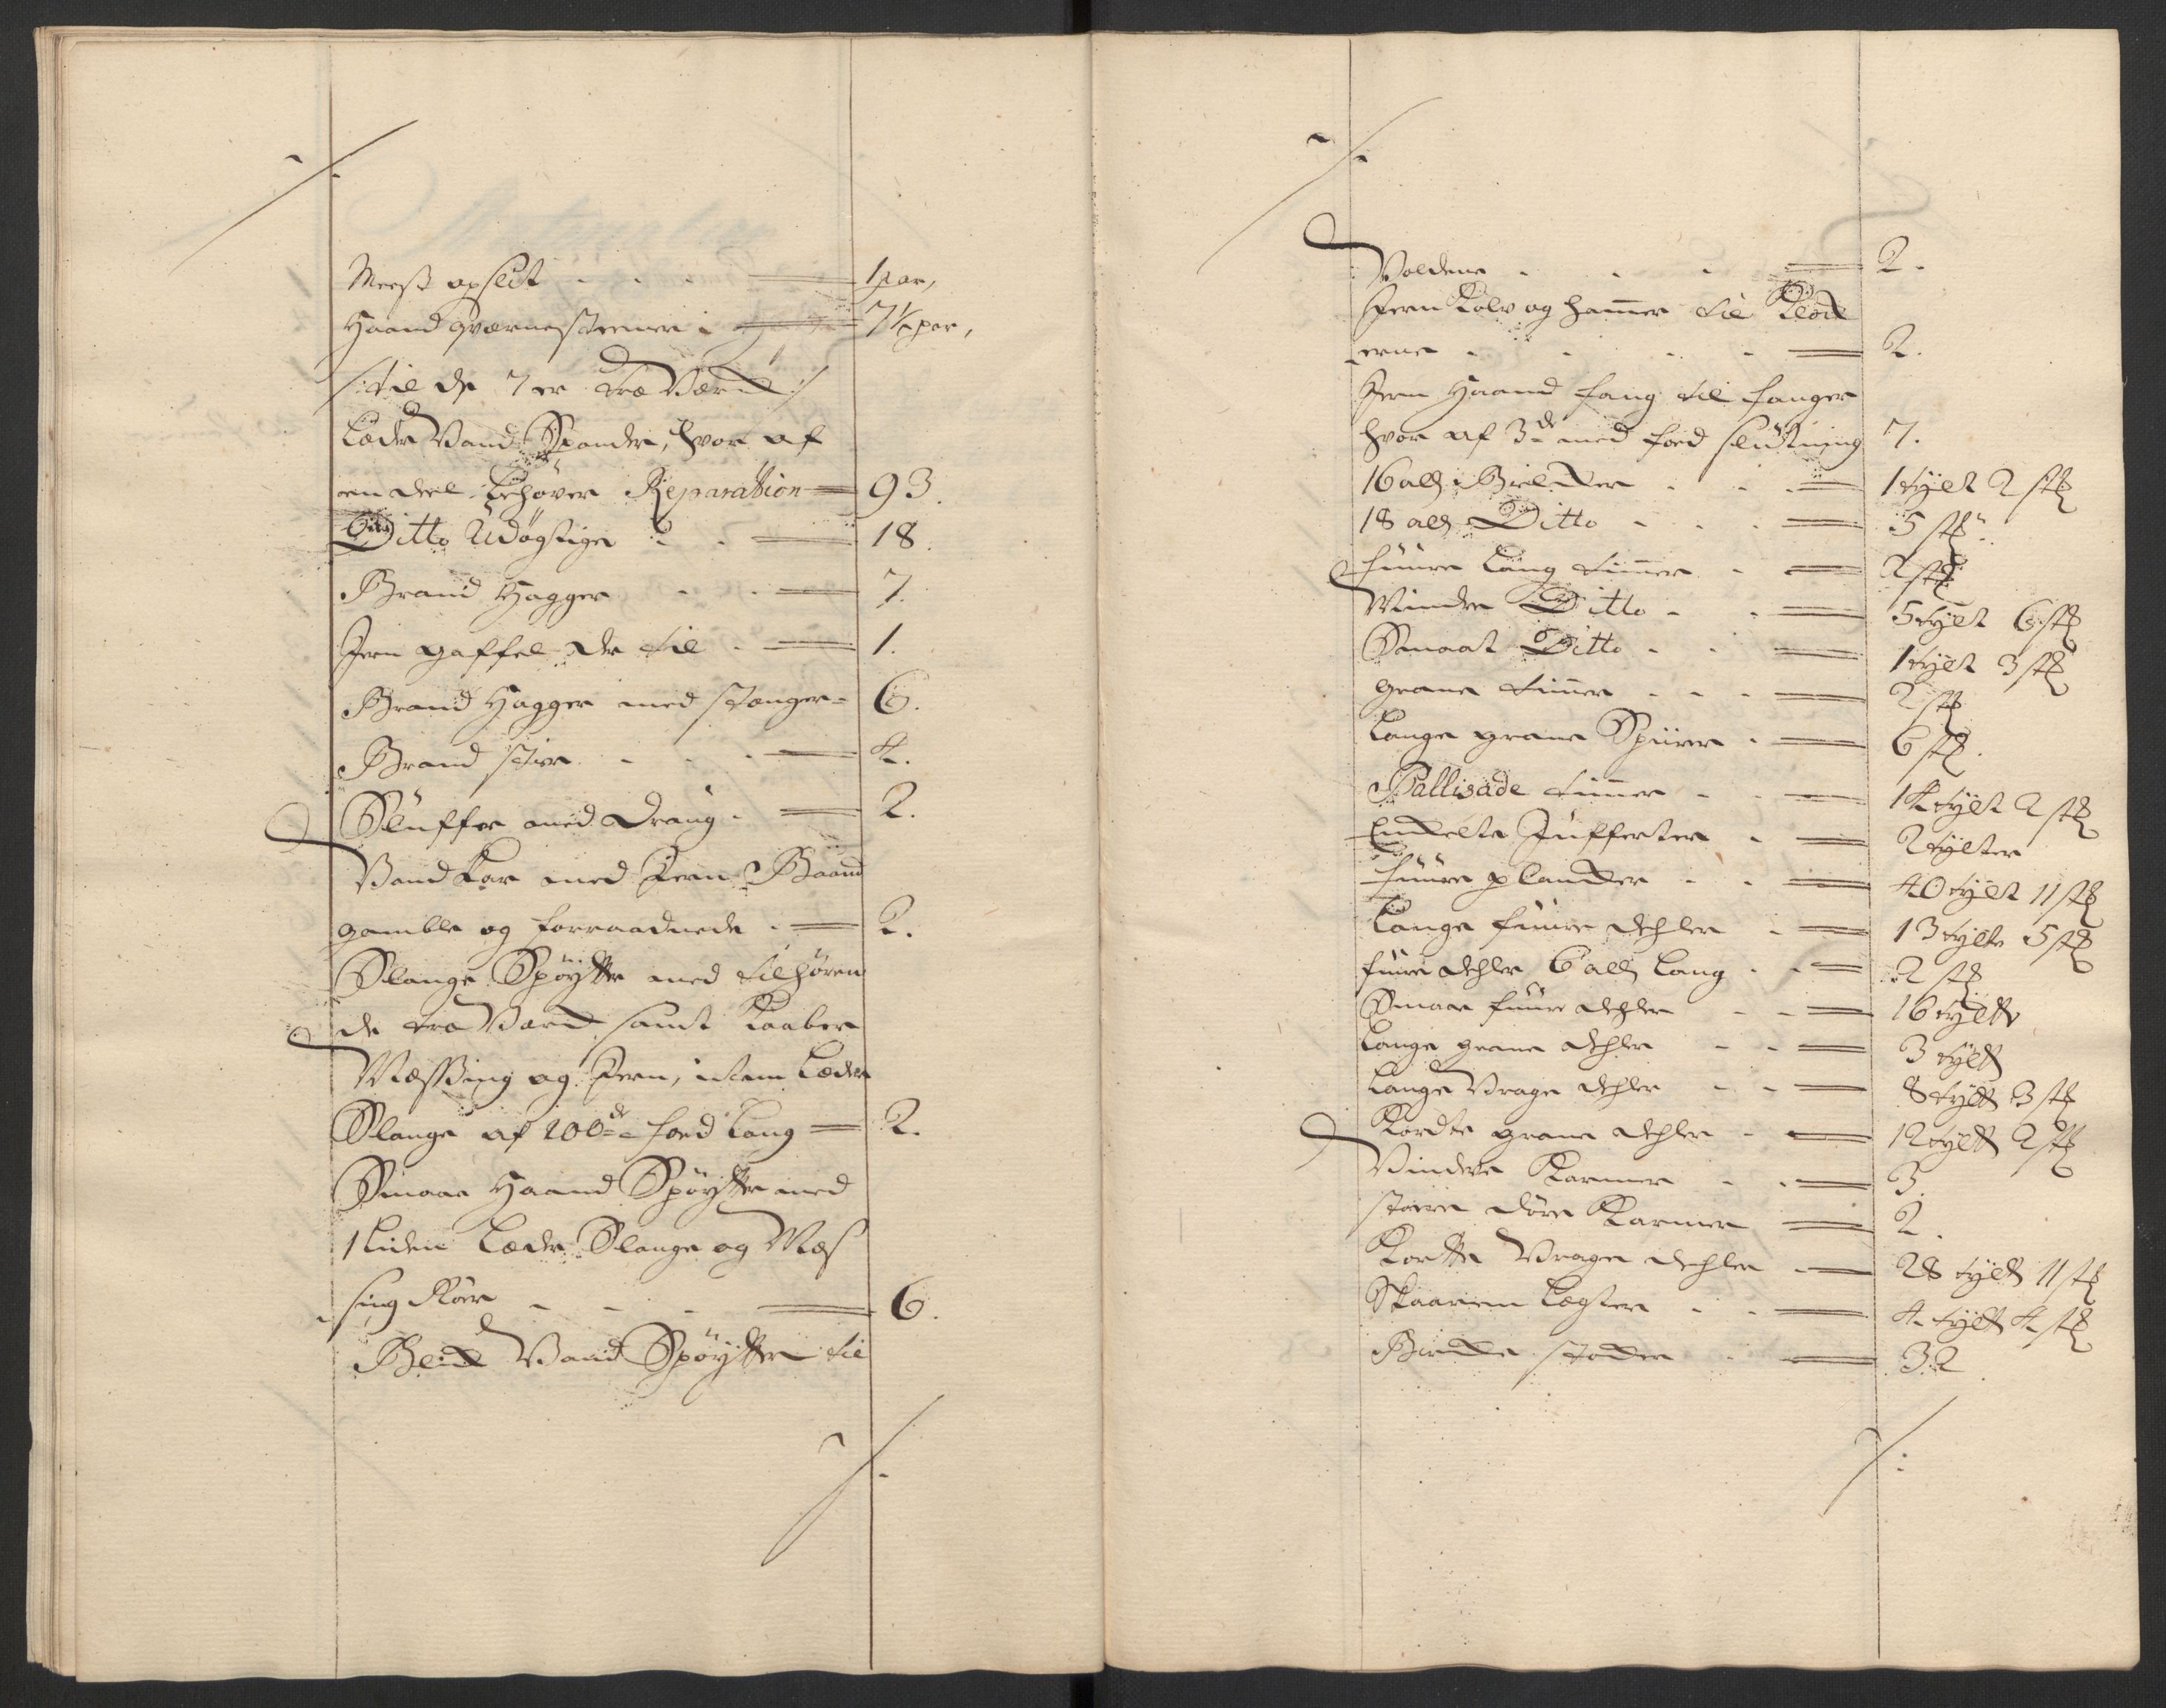 Meest opslidt - - - 1 par,
Haand Qværnesteener - 7½ par,
/: til de 7 er træ Værck :/
Læder Vand Spander, hvor af
een deel behøver Reparation 93.
Ditto Udøgtige - - 18.
Brand Hagger - - 7.
Jern gaffel der til - 1.
Brand Hagger med stænger 6.
Brand stier - - - 4.
Sluffer med Draug - 2.
Vand Kar med Jern Baand
gamble og forraadnede - 2.
Slange Spøytte med tilhøren
de træ Værck samt Kaaber
Messing og Jern, item Læder
Slange af 100de foed lang 2.
Smaae Haand Spøytter med
1 liden Læder Slange og Mes
sing Rør - - - 6.
Blick Vand Spøytter til
Voldene - - - 2.
Jern Kolv og hammer til Klock
erne - - - - 2.
Jern Haand fang til fanger
hvor af 3de med foed slutning 7.
16 all Bielcker - - - 1 tylt 2 stk
18 all Ditto - - - 5 stk
fuure lang timmer - 2 stk
Mindre Ditto - - 5 tylt 6 stk
Smaat Ditto - - 1 tylt 3 stk
grane timer - - - 2 stk
Lange grane Spiirer - 6 stk.
Pallisade timmer - - 14 tylt 2 stk
Enckelte Jufferter - 2 tylter
fuure plancker - - 40 tylt 11 stk
Lange fuure dehler - 13 tylt 5 stk
fuure dehler 6 all lang - - 2 stk
Smaae fuure dehler - - 16 tylt
Lange grane dehler - - 3 tylt
Lange Vrage dehler - - 8 tylt 3 stk
Kordte grane dehler - 12 tylt 2 stk
Vindve Karmer - - 3.
stoere dørre Karmer 2.
Kortte Vrage dehler - 28 tylt 11 stk
Skaarem Legter - - 4 tylt 4 stk
Bircke stocker - 32